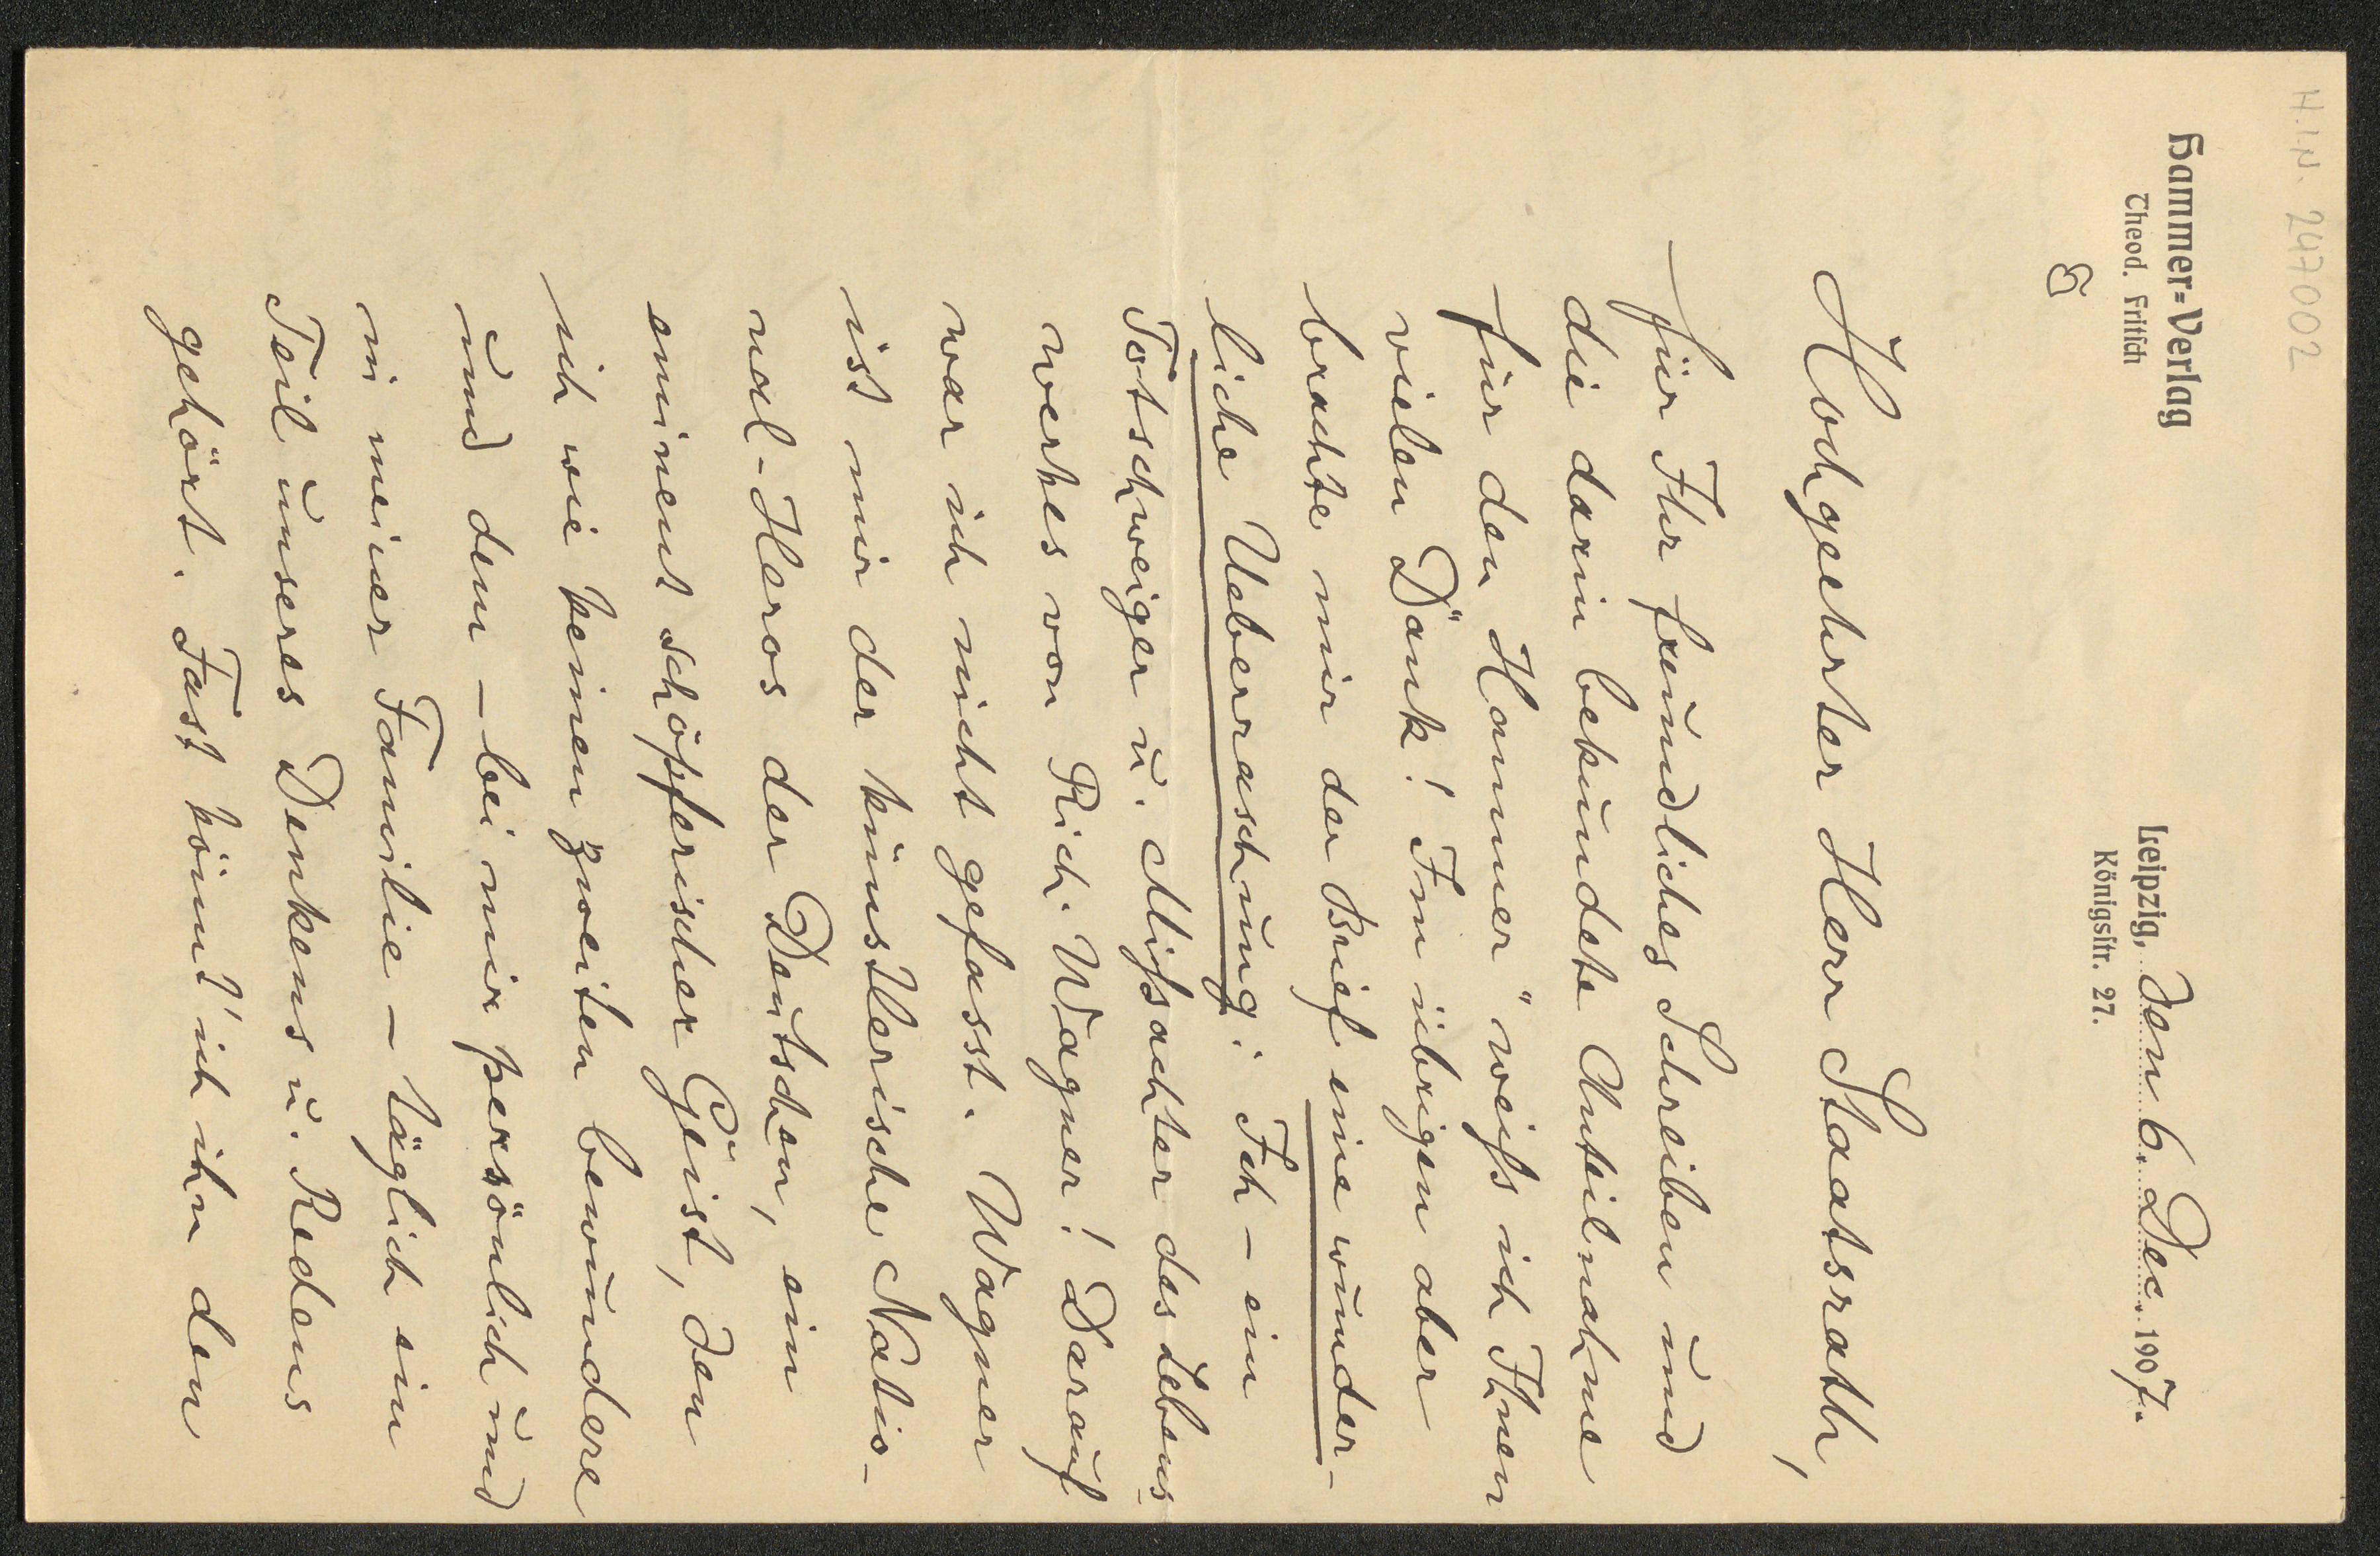 H.I.N. 247002
Hammer-Verlag
Theod. Fritsch
Leipzig, den 6. Dec. 1907.
Königstr. 27.
Hochgeehrter Herr Staatsrath,
für Ihr freundliches Schreiben und
die darin bekundete Anteilnahme
für den Hammer" weiß ich Ihnen
vielen Dank! Im übrigen aber
brachte mir der Brief eine wunder-
liche Ueberraschung: Ich – ein
Totschweiger u. Mißachter des Lebens-
werkes von Rich. Wagner! Darauf
war ich nicht gefasst. Wagner
ist mir der künstlerische Natio-
nal-Heros der Deutschen, ein
eminent schöpferischer Geist, den
ich wie keinen zweiten bewundere
und dem – bei mir persönlich und
in meiner Familie – täglich ein
Teil unseres Denkens u. Redens
gehört. Fast könnt' ich ihn den